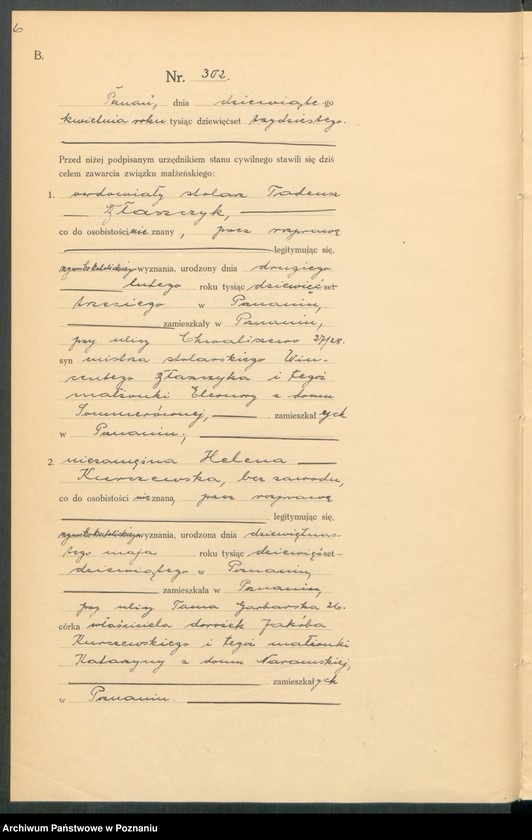 6
B.
Nr. 302.
Poznań, dnia dziewiąte-go
kwietnia roku tysiąc dziewięćset trzydziestego.
Przed niżej podpisanym urzędnikiem stanu cywilnego stawili się dziś
celem zawarcia związku małżeńskiego:
1. owdowiały stolarz Tadeusz
Złaszczyk,
co do osobistości nie znany, przez rozprawę
legitymując się.
rzymskokatolickiego wyznania, urodzony dnia drugiego
lutego roku tysiąc dziewięćset
trzeciego w Poznaniu,
zamieszkały w Poznaniu,
przy ulicy Chwaliszewo 27/28.
syn mistrza stolarskiego Win-
centego Złaszczyka i tegoż
małżonki Eleonory z domu
zamieszkałych
w Poznaniu;
2. niezamężna Helena
Kurczewska, bez zawodu,
co do osobistości nieznana, przez rozprawę
legitymując się,
rzymskokatolickiego wyznania, urodzona dnia dziewiętnas-
tego maja roku tysiąc dziewięćset-
dziewiątego w Poznaniu,
zamieszkała w Poznaniu,
przy ulicy Tama Garbarska 26.
córka właściciela dorożek Jakóba
Kurczewskiego i tegoż małżonki
Katarzyny z domu Naramskiej,
zamieszkałych
w Poznaniu.
Archiwum Państwowe w Poznaniu